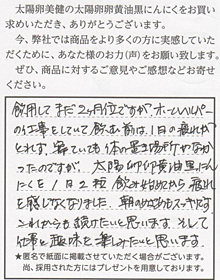 太陽卵美健の太陽卵卵黄油黒にんにくをお買い
求めいただき、ありがとうございます。
今、弊社では商品をより多くの方に実感していた
だくために、あなた様のお力(お声)をお願い致します。
ぜひ、商品に対するご意見やご感想などお寄せ
ください。
飲用してまだ2ヶ月位ですが、ホームヘルパー
の仕事をしていて飲む前は、1日の疲れが
とれず、寝ていても体の置き場がなかっ
たのですが、太陽卵卵黄油黒にんに
にくを1日2粒飲み始めから疲れ
を感じなくなりました。朝の目ざめもスッキリで
これからも続けたいと思います。そして
仕事と趣味と楽しみたいと思います。
★匿名で紙面に掲載させていただく場合がございます。
尚、採用された方にはプレゼントを用意しております。